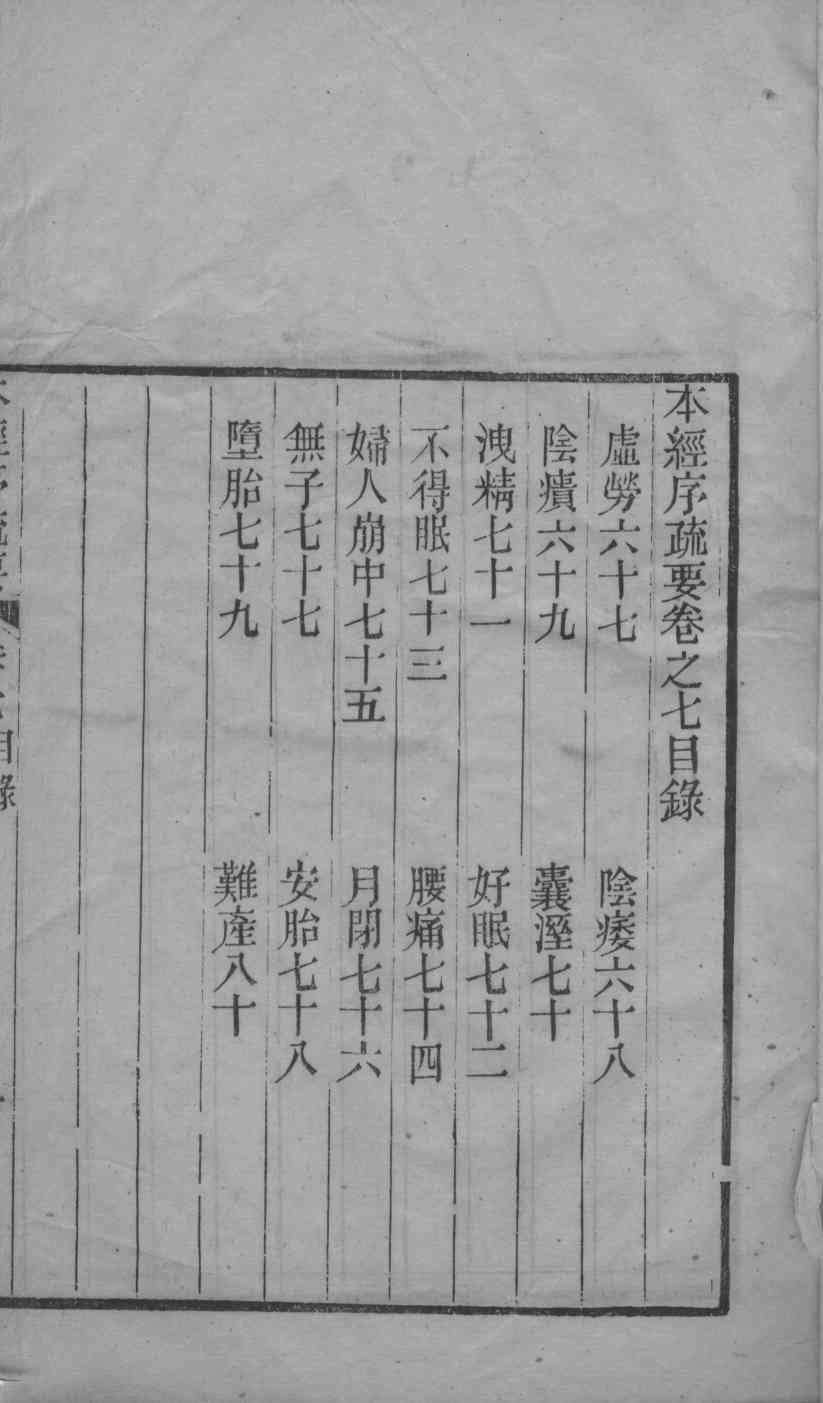 本經序疏要卷之七目錄
虛勞六十七　陰痿六十八
陰㿉六十九　囊溼七十
洩精七十一　好眠七十二
不得眠七十三　腰痛七十四
婦人崩中七十五　月閉七十六
無子七十七　安胎七十八
墮胎七十九　難產八十
目錄